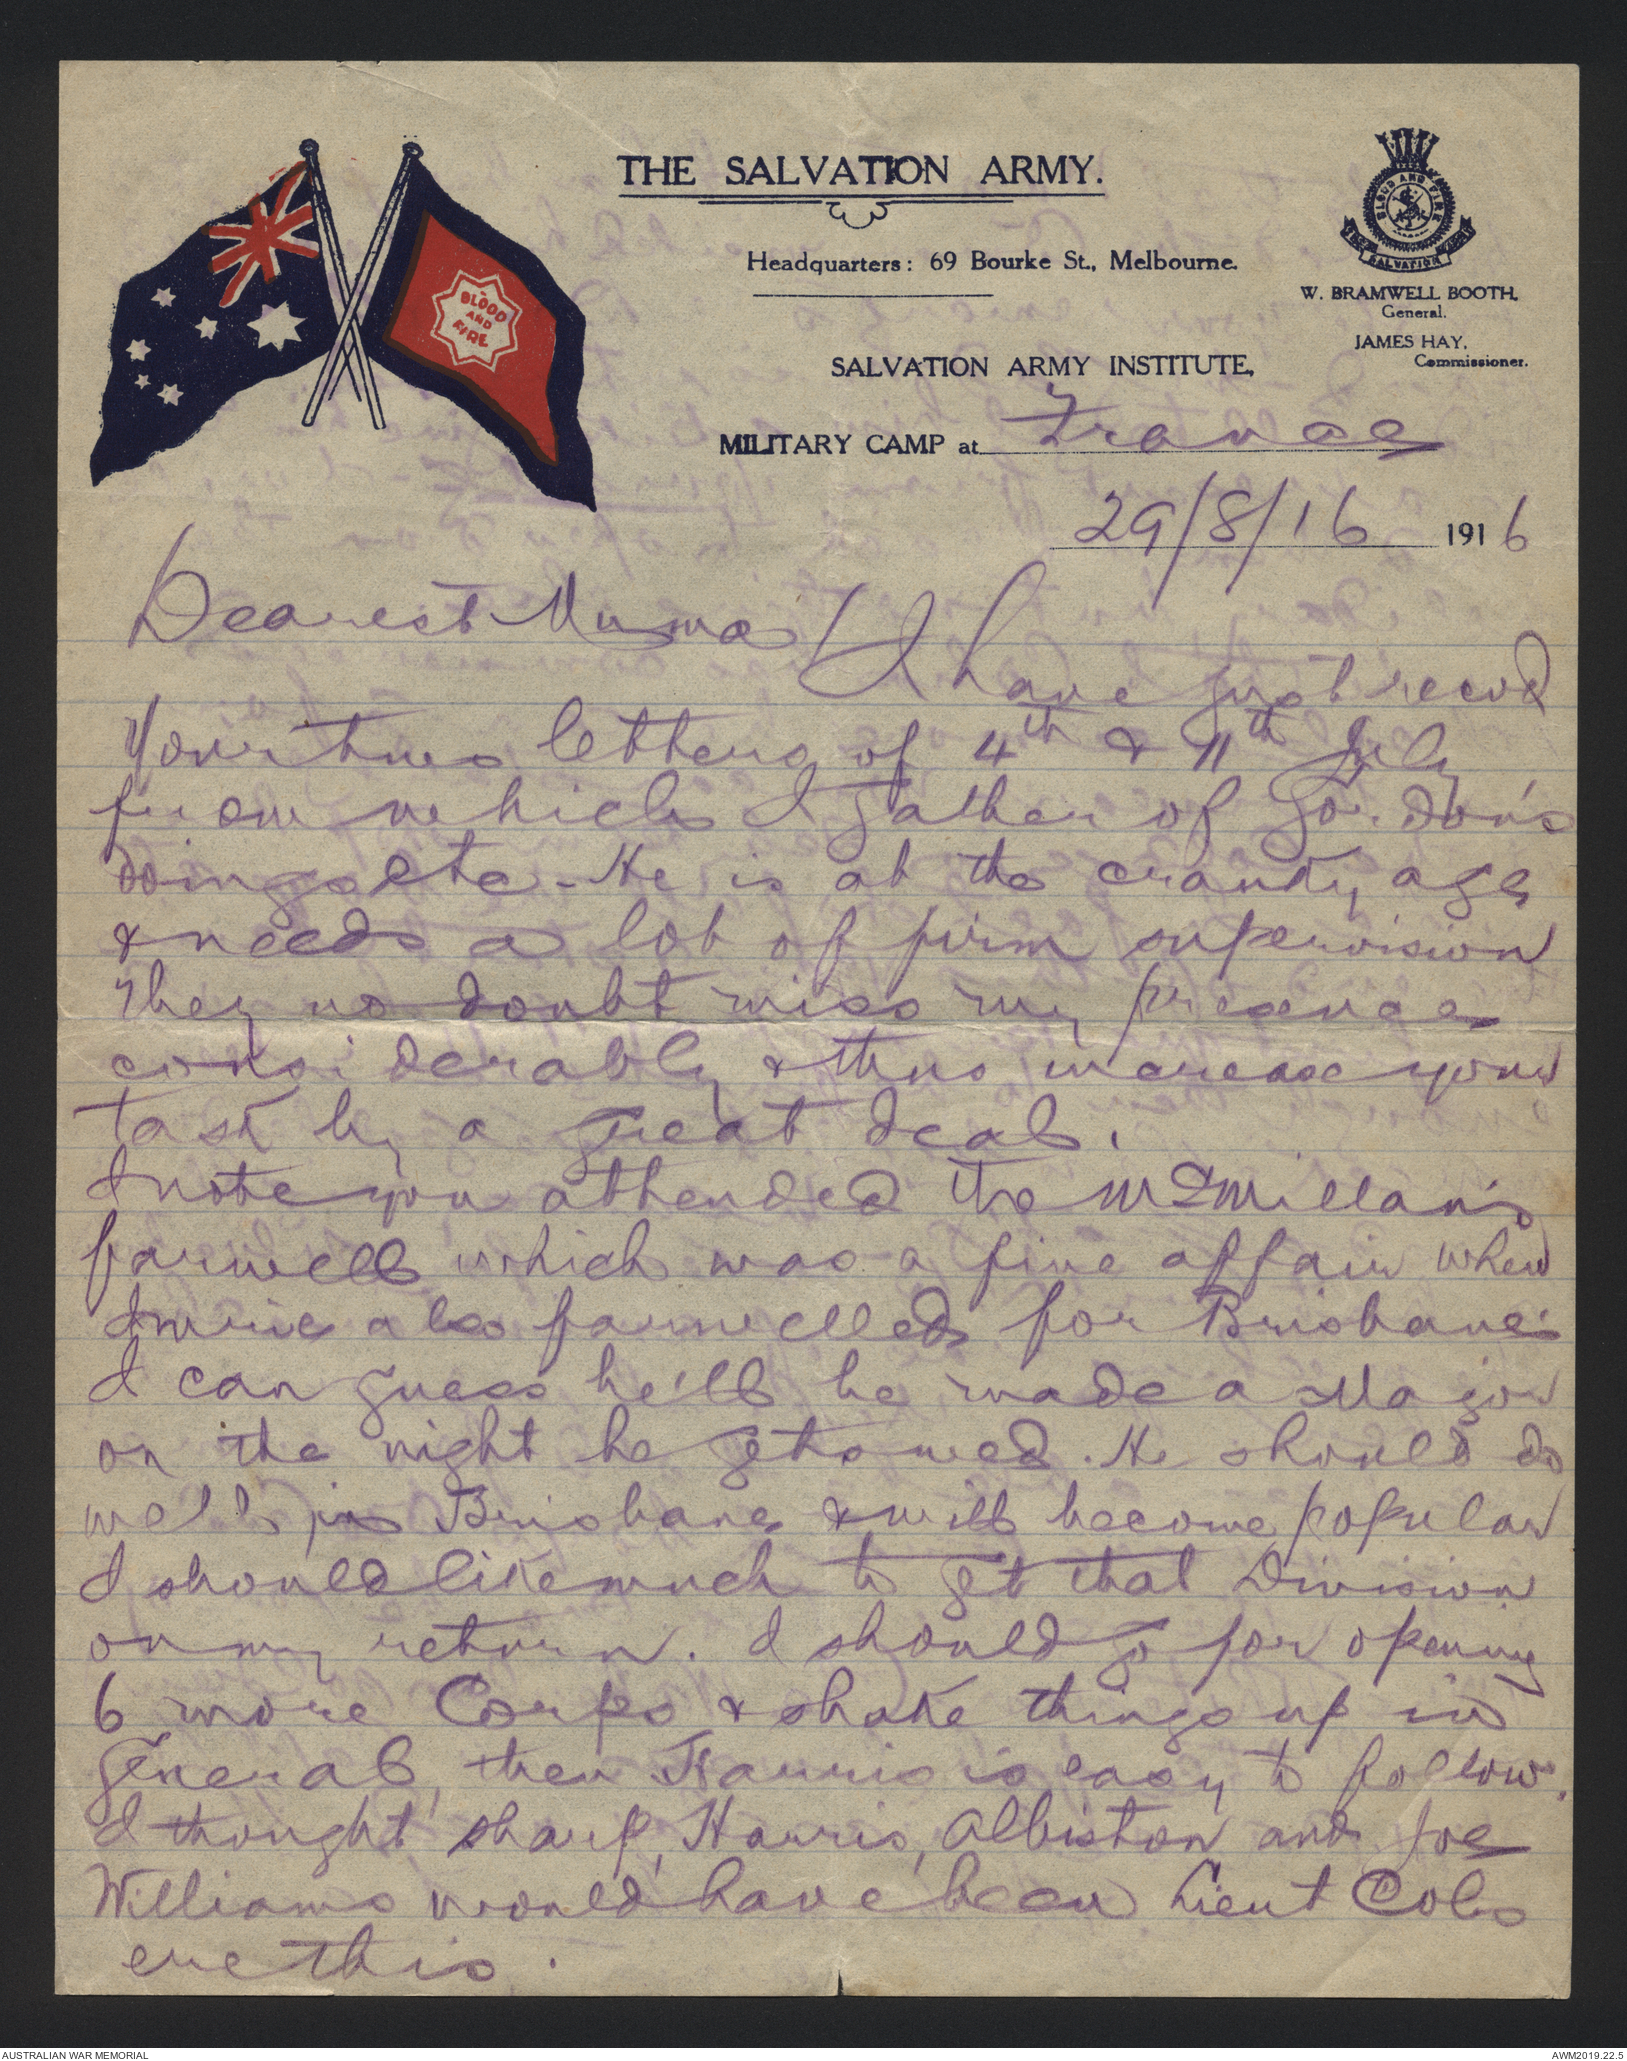 THE SALVATION ARMY.
Headquarters: 69 Bourke St., Melbourne.
BLOOD AND FIRE
SALVATION
W. BRAMWELL BOOTH,
General.
JAMES HAY,
Commissioner.
BLOOD
AND
FIRE
SALVATION ARMY INSTITUTE,
MILITARY CAMP at France
29/8/16 1916
Dearest Mumma
I have just recvd
Your two letters of 4th & 11th July
from which I gather of Gordon's
doings etc - He is at the cranky age
& needs a lot of firm supervision
They no doubt miss my presence
considerably & thus increase your
task by a great deal.
I note you attended the McMillan's
farwell which was a fine affair when
I were also farwelled for Brisbane.
I can guess he'll be made a Major
on the night he gets wed. He should do
well in Brisbane & will become popular
I should like much to get that Division
on my return. I should go for opening
6 more Corps & shake things up in
General, then Harris is easy to follow.
I thought Sharp, Harris, Albiston and Joe
Williams would have been Lieut Cols
ere this.
AUSTRALIAN WAR MEMORIAL
AWM2019.22.5